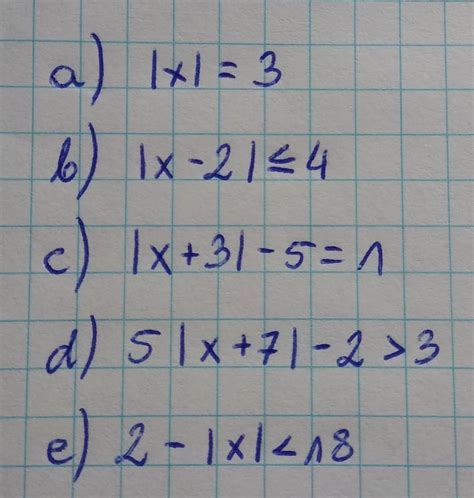 a) |x| = 3
b) |x - 2| ≤ 4
c) |x + 3| - 5 = 1
d) 5 |x + 7| - 2 > 3
e) 2 - |x| < 18